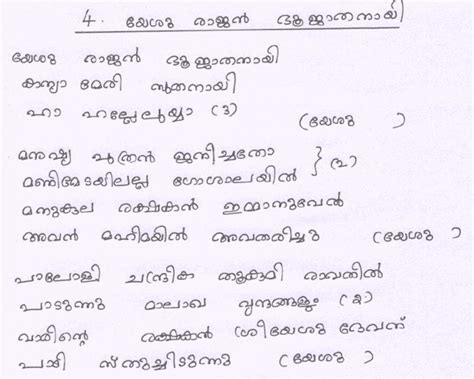 4. യേശു രാജൻ ഭൂജാതനായി
യേശു രാജൻ ഭൂജാതനായി
കന്യാ മേരി സുതനായി
ഹാ ഹല്ലേലുയ്യാ (3)
(യേശു )
മനുഷ്യ പുത്രൻ ജനിച്ചതോ
മണിമേടയിലല്ല ഗോശാലയിൽ } (2)
മനുകുല രക്ഷകൻ ഇമ്മാനുവേൽ
അവൻ മഹിമയിൽ അവതരിച്ചു (യേശു )
പാലോളി ചന്ദ്രിക തൂകുമി രാവതിൽ
പാടുന്നു മാലാഖ വൃന്ദങ്ങളും (2)
രക്ഷകൻ ശ്രീയേശു ദേവന്
പാടി സ്തുതിച്ചിടുന്നു (യേശു )